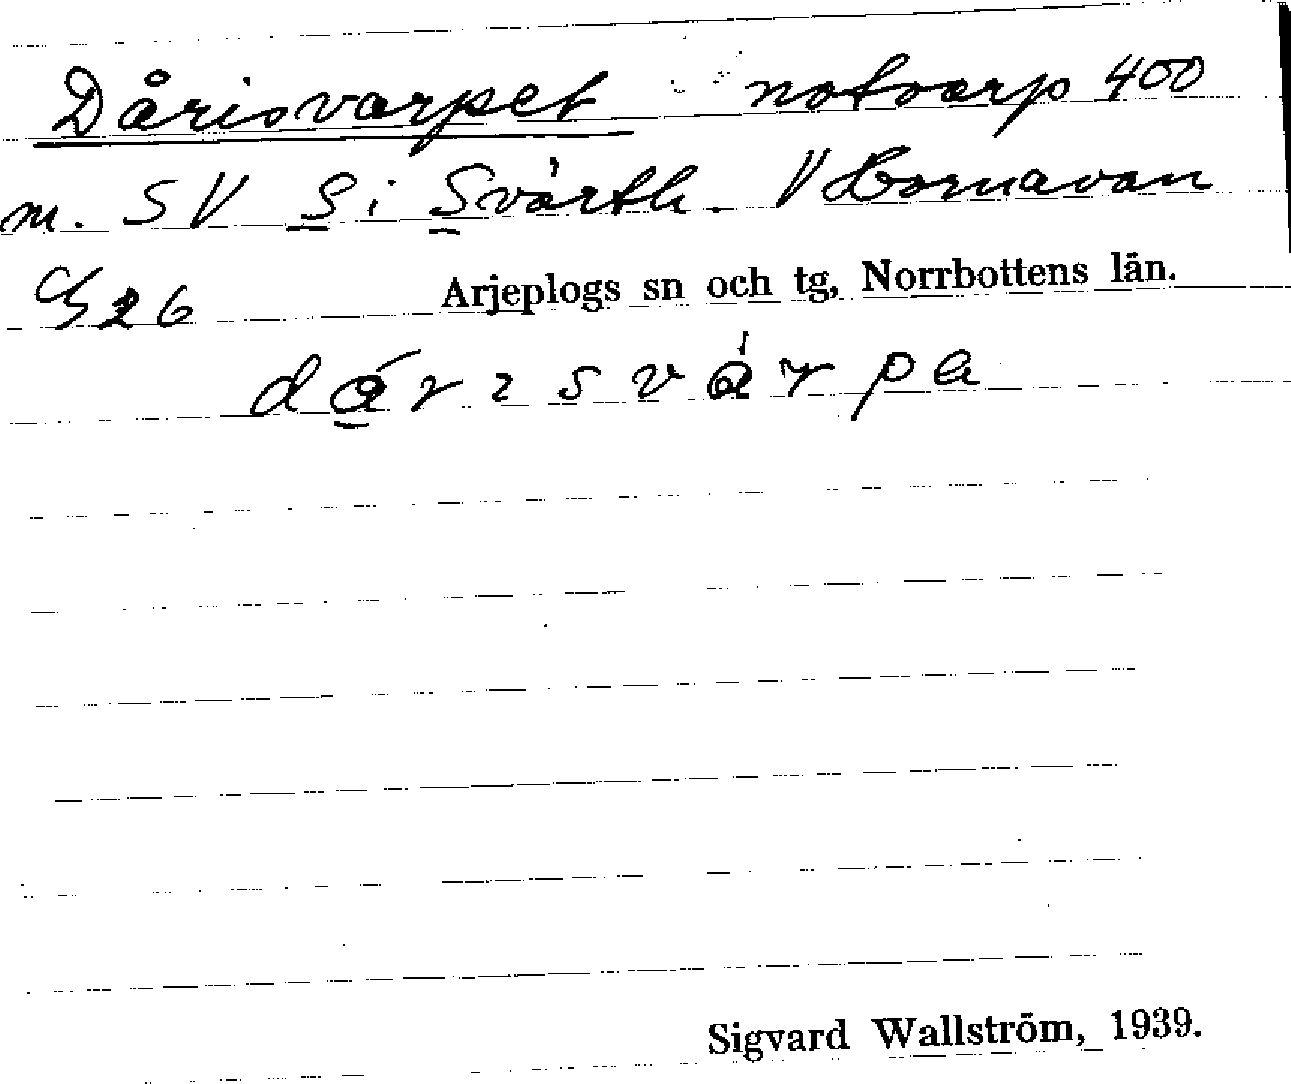 Dårisvarpet notvarp 400
m. SV S i Svärth. V Hornavan
G26 Arjeplogs sn och tg, Norrbottens län.
dárisvárpa
Sigvard Wallström, 1939.